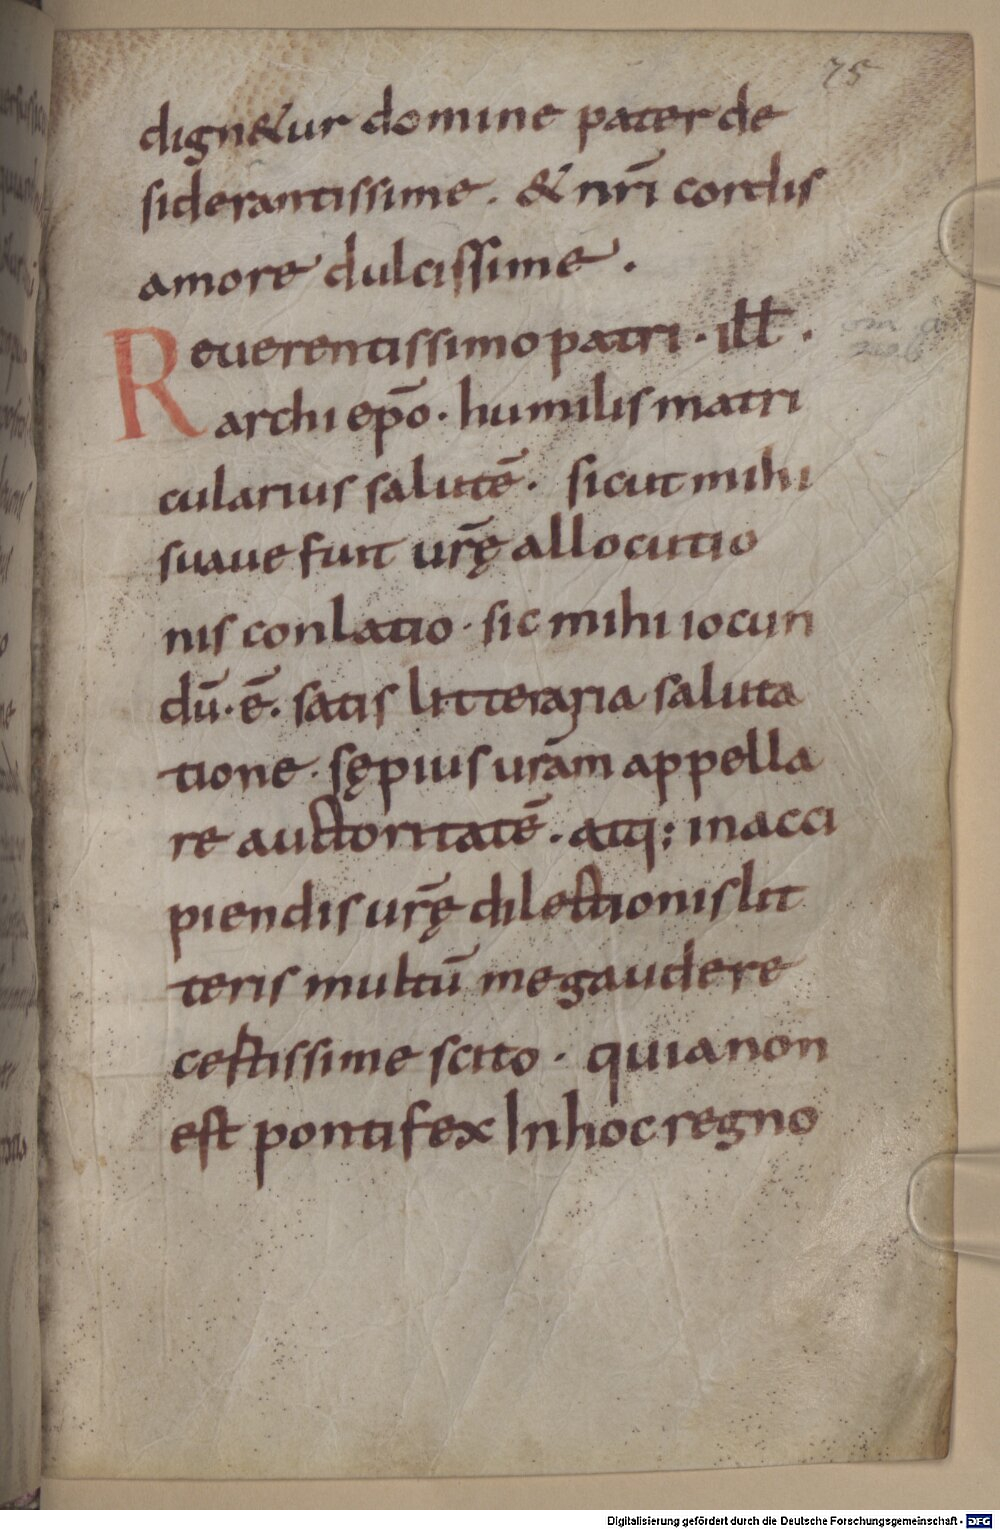 75
dign&ur domine pater de
siderantissime. & nr̄i cordis
amore dulcissime.
Reuerentissimo patri · ill̄ ·
archi ep̄o · humilis matri
cularius salutē · sicut mihi
suaue fuit ur̄ę allocutio
nis conlatio · sic mihi iocun
dū · ē · satis litteraria saluta
tione · sępius urām appella
re auctoritatē · atq; in acci
piendis ur̄ę dilectionis lit
teris multū me gaudere
certissime scito · quia non
est pontifex In hoc regno
Digitalisierung gefördert durch die Deutsche Forschungsgemeinschaft - DFG